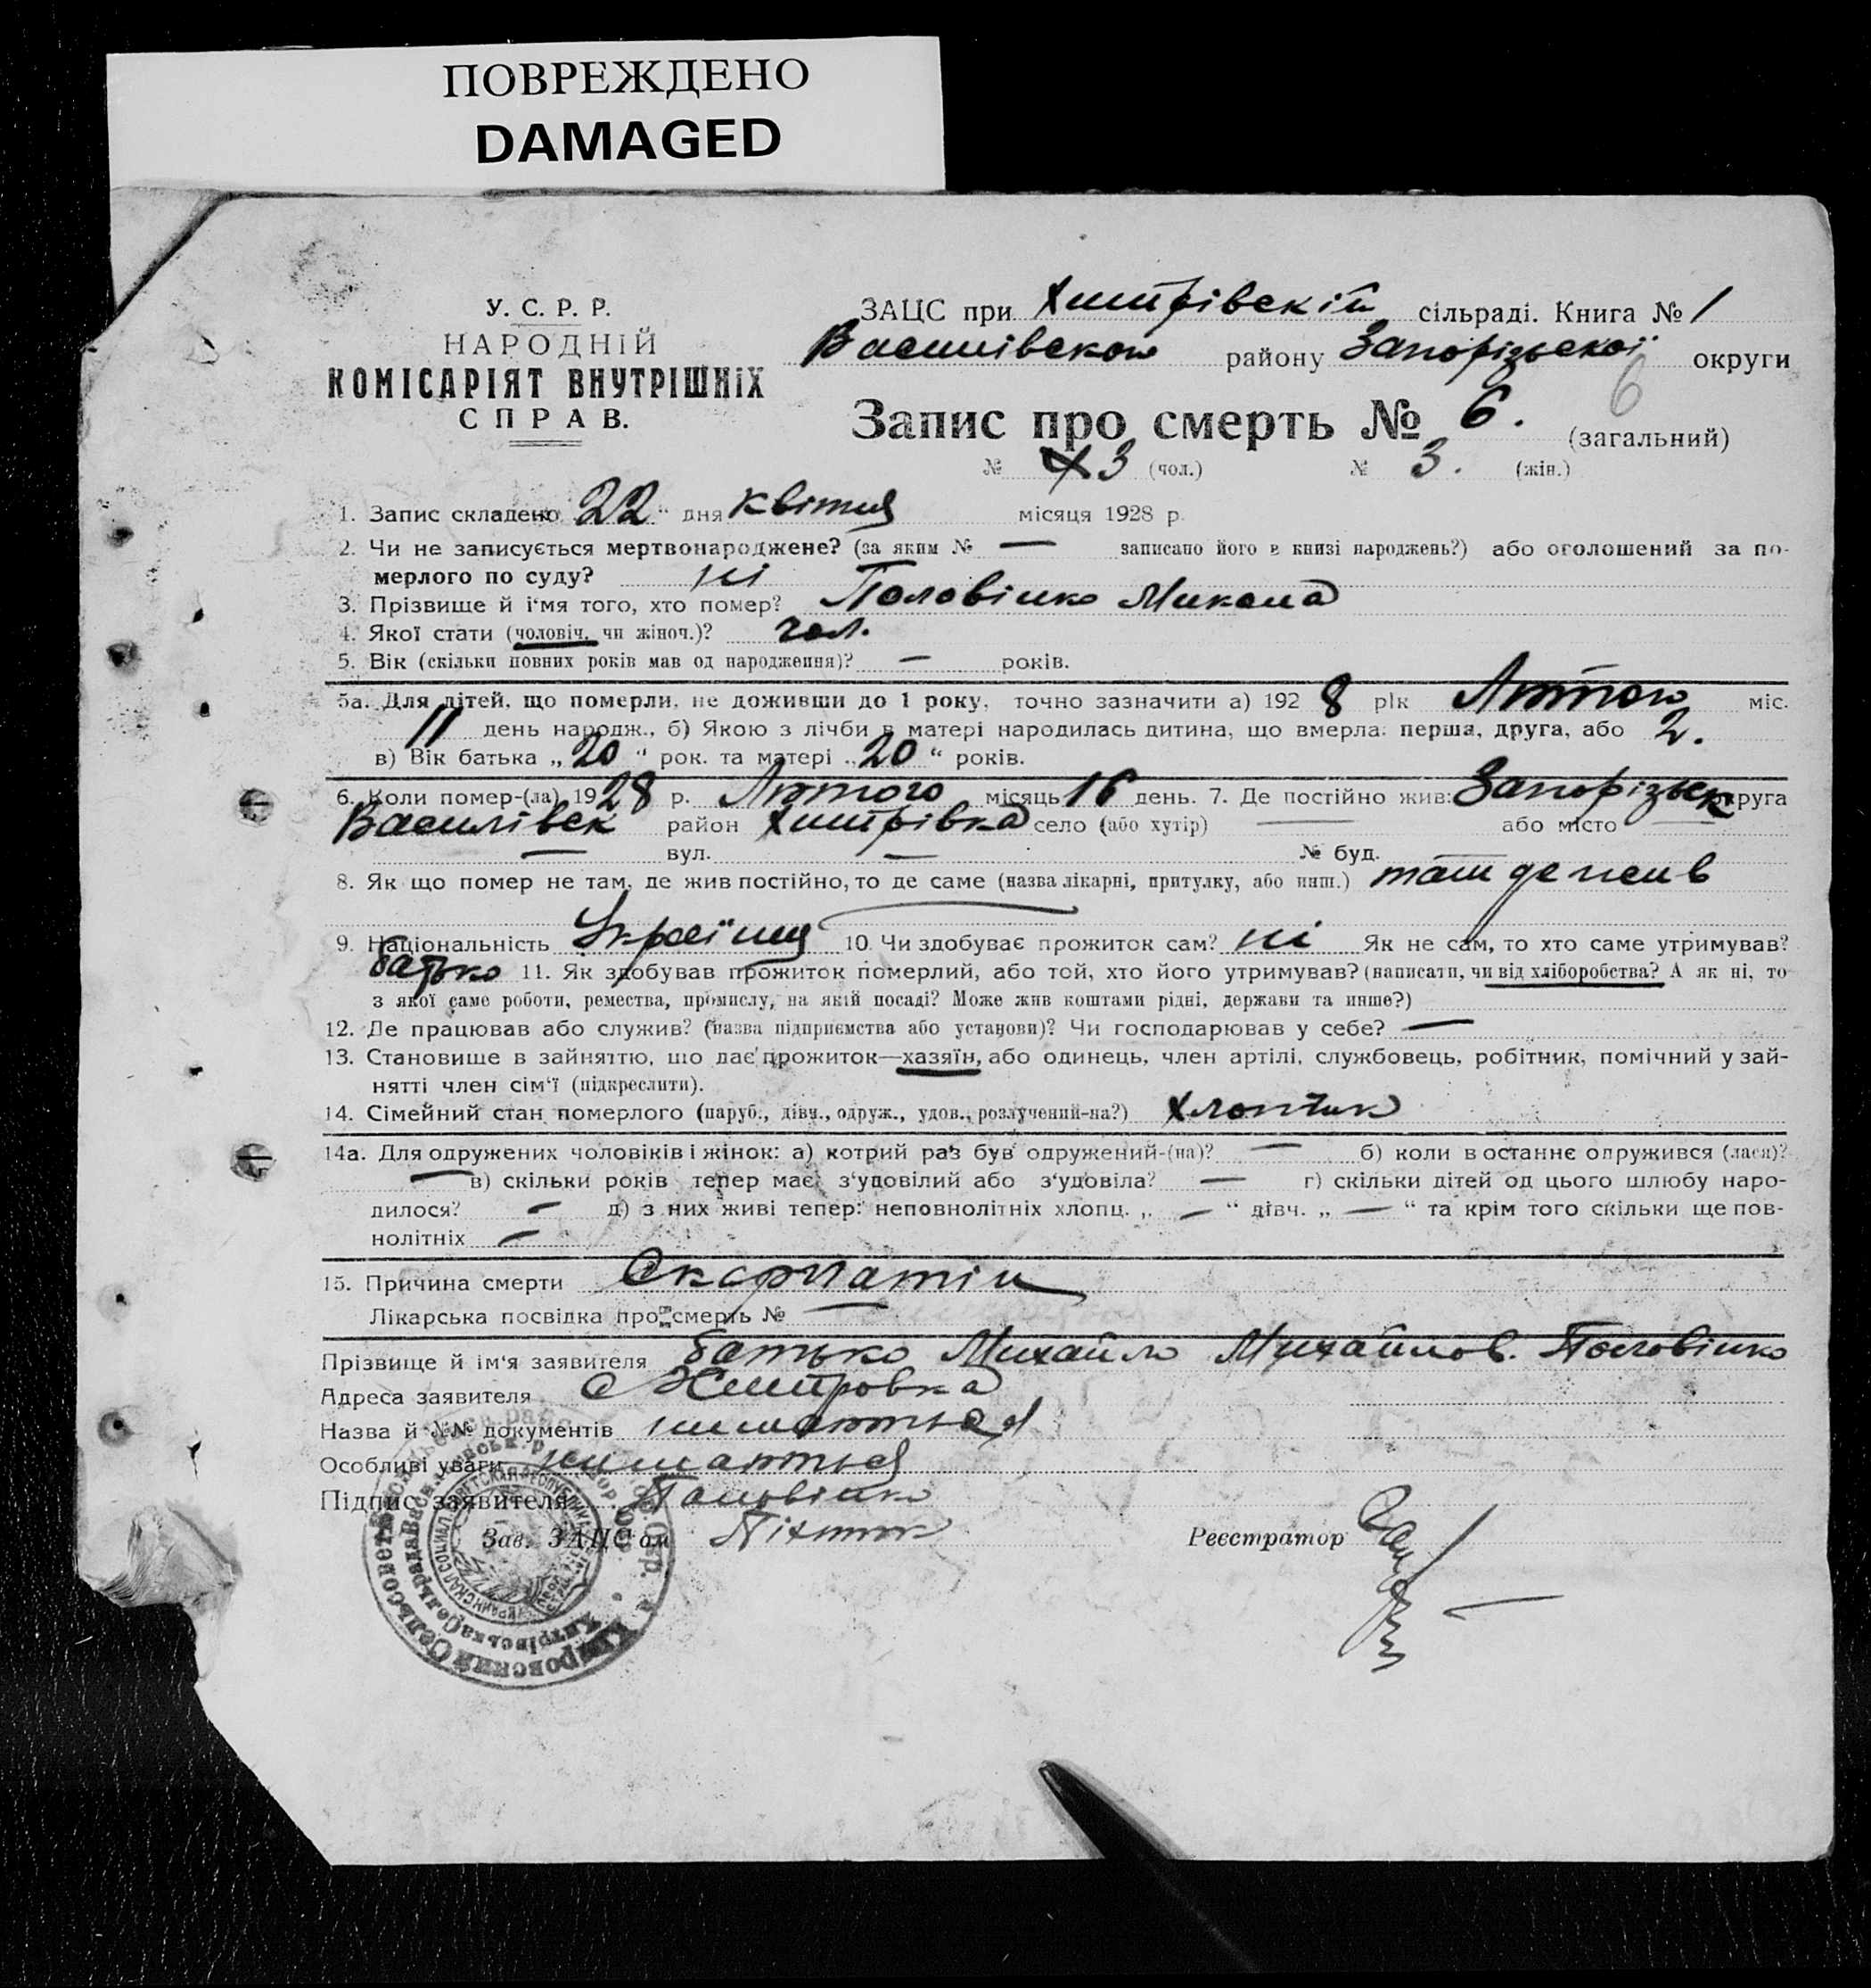 ПОВРЕЖДЕНО
DAMAGED
У. С. Р. Р.
НАРОДНІЙ
КОМІСАРІЯТ ВНУТРІШНІХ
СПРАВ.
ЗАЦС при Хитрівській сільраді. Книга № 1
Василівского району Запорізьскої округи
Запис про смерть № 6. (загальний) 6
№ 3 (чол.) № 3. (жін.)
1. Запис складено „22“ дня квітня місяця 1928 р.
2. Чи не записується мертвонароджене? (за яким № — записано його в книзі народжень?) або оголошений за по-
мерлого по суду? ні
3. Прізвище й і'мя того, хто помер? Половінко Микола
4. Якої стати (чоловіч. чи жіноч.)? чол.
5. Вік (скільки повних років мав од народження)? — років.
5а. Для дітей, що померли, не доживши до 1 року, точно зазначити а) 1928 рік Лютого міс.
11 день народж., б) Якою з лічби в матері народилась дитина, що вмерла: перша, друга, або 2.
в) Вік батька „20“ рок. та матері „20“ років.
6. Коли помер-(ла) 1928 р. Лютого місяць 16 день. 7. Де постійно жив: Запорізьск округа
Василівск район Хитрівка село (або хутір) — або місто —
— вул. — № буд. —
8. Як що помер не там, де жив постійно, то де саме (назва лікарні, притулку, або инш.) там де жив
9. Національність Україниц 10. Чи здобуває прожиток сам? ні Як не сам, то хто саме утримував?
батько 11. Як здобував прожиток померлий, або той, хто його утримував? (написати, чи від хліборобства? А як ні, то
з якої саме роботи, ремества, промислу, на якій посаді? Може жив коштами рідні, держави та инше?)
12. Де працював або служив? (назва підприємства або установи)? Чи господарював у себе? —
13. Становище в зайняттю, що дає прожиток—хазяїн, або одинець, член артілі, службовець, робітник, помічний у зай-
нятті член сім'ї (підкреслити).
14. Сімейний стан померлого (паруб., дівч., одруж., удов., розлучений-на?) Хлопчик
14а. Для одружених чоловіків і жінок: а) котрий раз був одружений-(на)? — б) коли востаннє одружився (лася)?
— в) скільки років тепер має з'удовілий або з'удовіла? — г) скільки дітей од цього шлюбу наро-
дилося? — д) з них живі тепер: неповнолітніх хлопц. „—“ дівч. „—“ та крім того скільки ще пов-
нолітніх —
15. Причина смерти Скарлатін
Лікарська посвідка про смерть № —
Прізвище й ім'я заявителя батько Михайло Михайлов. Половінко
Адреса заявителя с Хитровка
Назва й №№ документів
Особливі уваги
Підпис заявителя Половінко
Зав. ЗАЦС'ом
Реєстратор
Хитровский Сельсовет
Хитрівська Сельрада